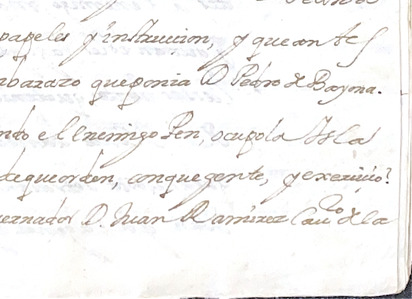 papeles y instruccion, y que antes
mbarazo que ponia D Pedro de Bayona.
ndo el Enemigo Pen, ocupó la Isla
de que orden, con que gente, y exercio?
vernador D. Juan Ramirez Cauro de la